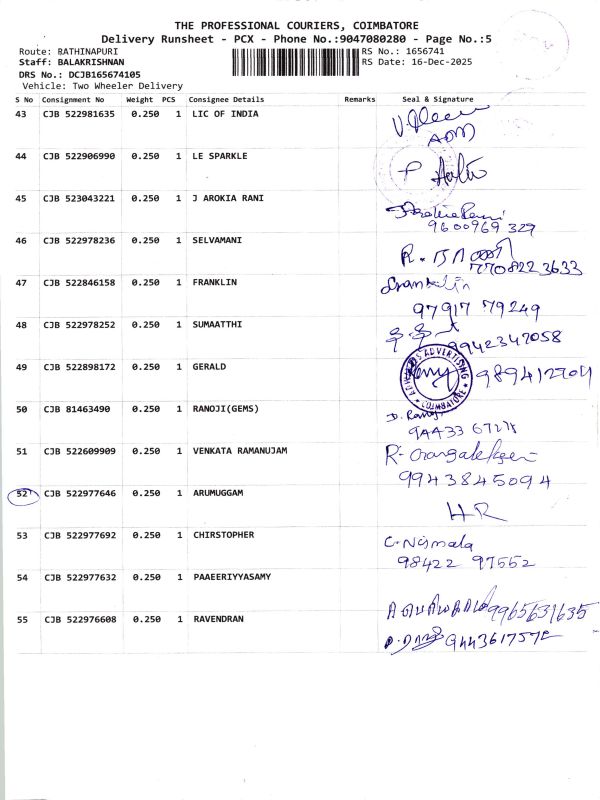 THE PROFESSIONAL COURIERS, COIMBATORE
Delivery Runsheet - PCX - Phone No.:9047080280 - Page No.:5
Route: RATHINAPURI RS No.: 1656741
Staff: BALAKRISHNAN RS Date: 16-Dec-2025
DRS No.: DCJB165674105
Vehicle: Two Wheeler Delivery
S No Consignment No Weight PCS Consignee Details Remarks Seal & Signature
43 CJB 522981635 0.250 1 LIC OF INDIA
ADM
44 CJB 522906990 0.250 1 LE SPARKLE
45 CJB 523043221 0.250 1 J AROKIA RANI
9600969 329
46 CJB 522978236 0.250 1 SELVAMANI
7708223633
47 CJB 522846158 0.250 1 FRANKLIN
97917 79249
48 CJB 522978252 0.250 1 SUMAATTHI
9942347058
49 CJB 522898172 0.250 1 GERALD
ADVERTISING
COIMBATORE
50 CJB 81463490 0.250 1 RANOJI(GEMS)
51 CJB 522609909 0.250 1 VENKATA RAMANUJAM
9943845094
52 CJB 522977646 0.250 1 ARUMUGGAM
HR
53 CJB 522977692 0.250 1 CHIRSTOPHER C. Nirmala
98422 97552
54 CJB 522977632 0.250 1 PAAEERIYYASAMY
9965631635
55 CJB 522976608 0.250 1 RAVENDRAN